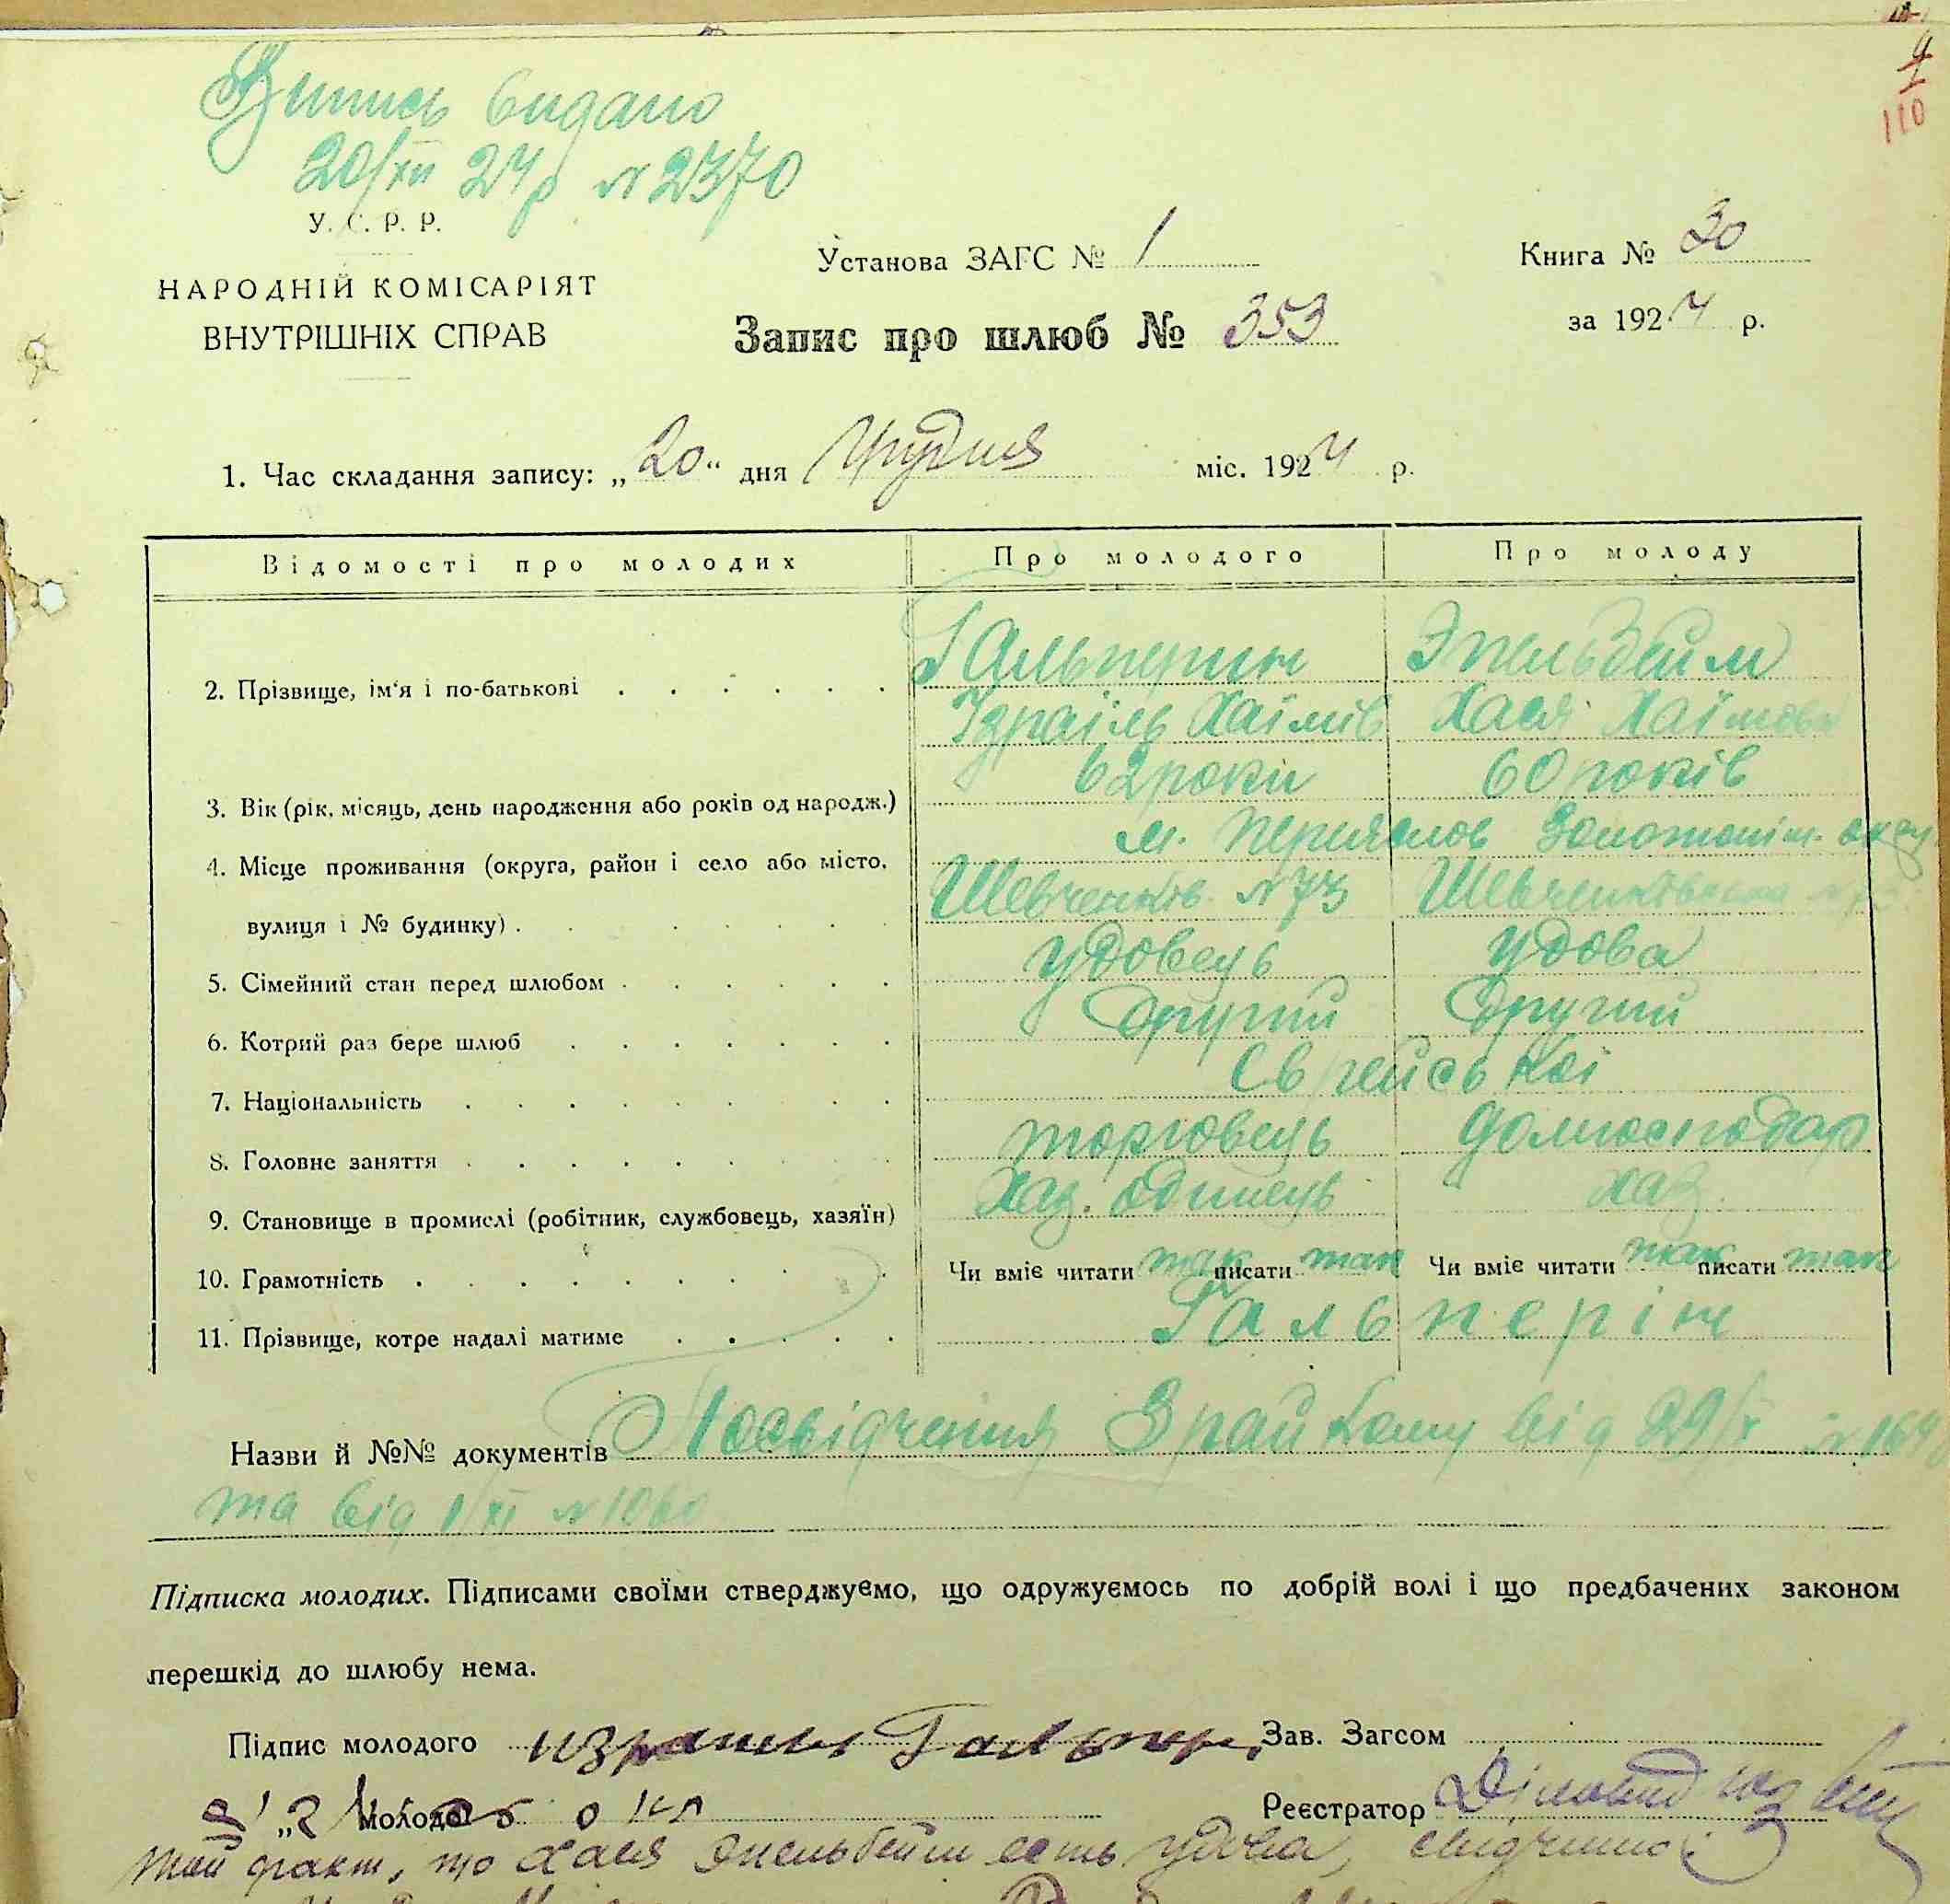 Випись видано
20/XII 24 р № 2370
У. С. Р. Р.
НАРОДНІЙ КОМІСАРІЯТ
ВНУТРІШНІХ СПРАВ
Установа ЗАГС № 1
Запис про шлюб № 353
Книга № 30
за 1924 р.
110
1. Час складання запису: „20“ дня Грудня міс. 1924 р.
Відомості про молодих Про молодого Про молоду
2. Прізвище, ім'я і по-батькові Гальперин Эпельбейм
Ізраїль Хаїмів Хася Хаїмова
3. Вік (рік, місяць, день народження або років од народж.) 62 роки 60 років
4. Місце проживання (округа, район і село або місто, м. Переяслов Золотоніш. окру.
вулиця і № будинку) Шевченків. № 73 Шевченківська № 73
5. Сімейний стан перед шлюбом удовець удова
6. Котрий раз бере шлюб Другий Другий
7. Національність Єврейської
8. Головне заняття торговець домгосподар
9. Становище в промислі (робітник, службовець, хазяїн) Хаз. одинець хаз.
10. Грамотність Чи вміє читати так писати так Чи вміє читати так писати так
11. Прізвище, котре надалі матиме Гальперін
Назви й №№ документів Посвідчення Зрайкому від 29/X №
та від 1/XI № 1060
Підписка молодих. Підписами своїми стверджуємо, що одружуємось по добрій волі і що предбачених законом
перешкід до шлюбу нема.
Підпис молодого Израиль Гальпер. Зав. Загсом
„ молодої Реєстратор Діловод
Той факт, що Хася Эпельбейм есть удова, свідчимо: